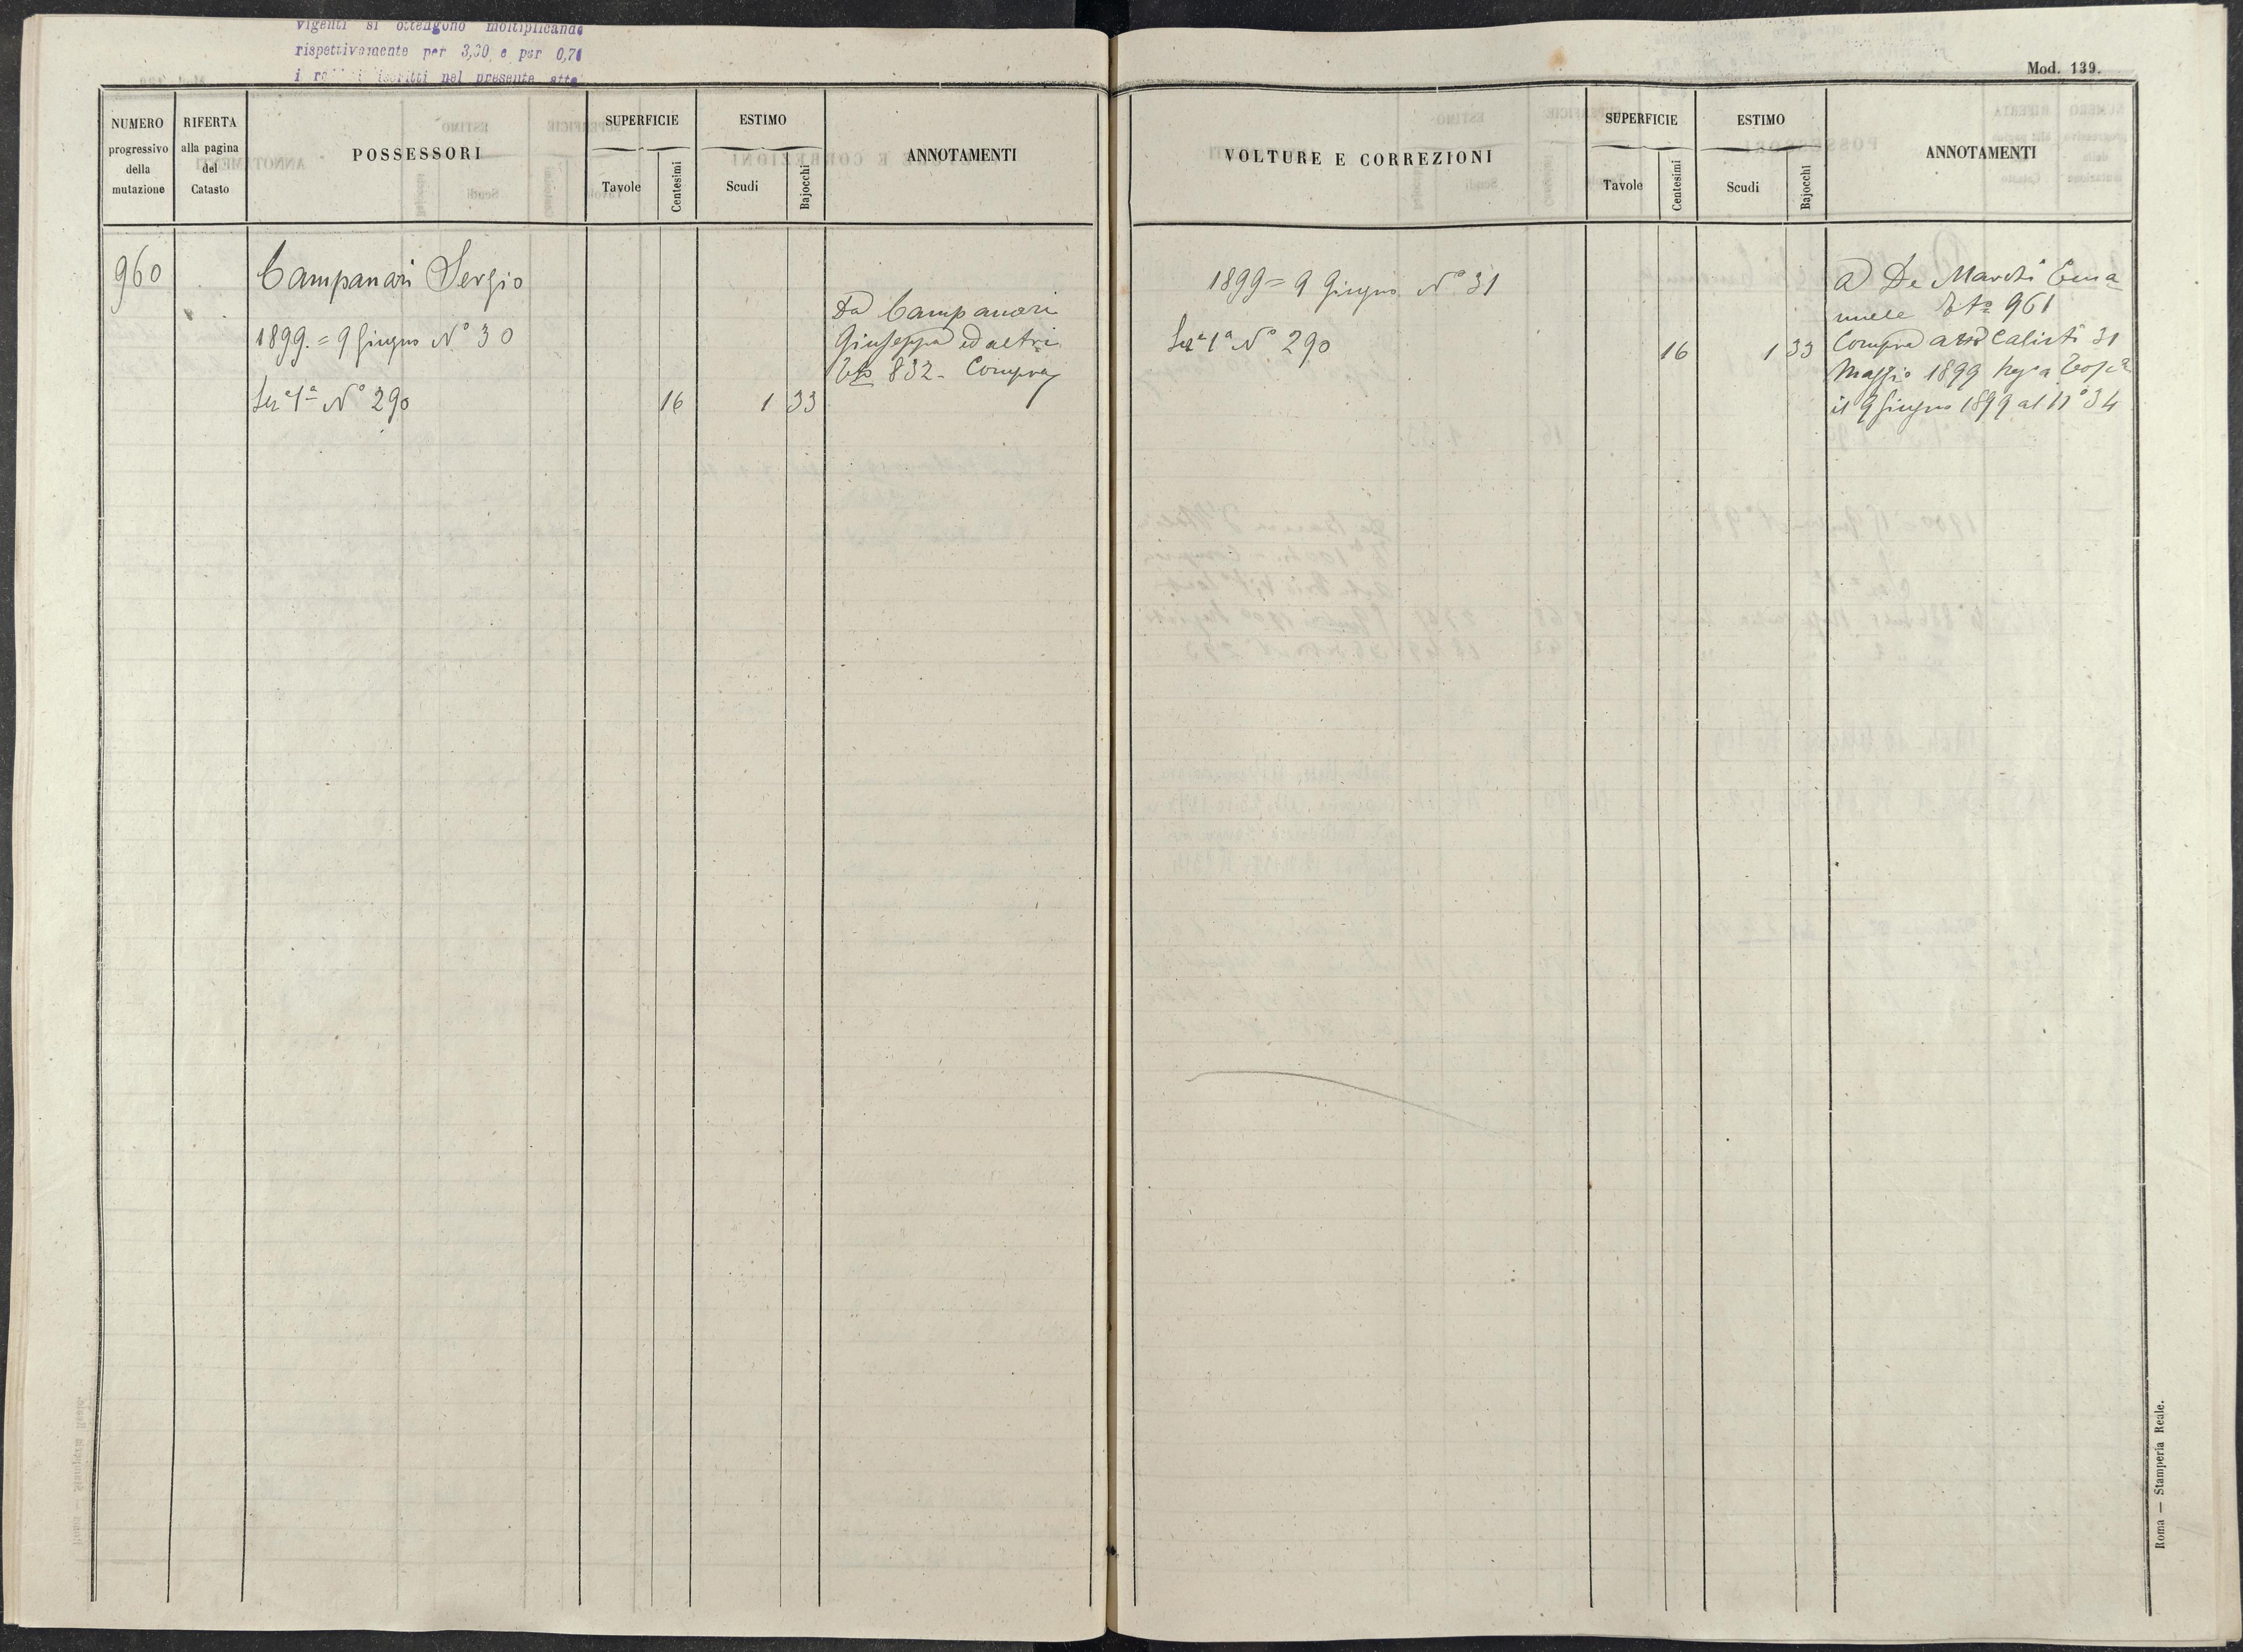 vigenti si ottengono moltiplicando
rispettivamente per 3,30 e per 0,71
i iscritti nel presente atto
Mod. 139.
NUMERO progressivo della mutazione
RIFERTA alla pagina del Catasto
POSSESSORI
SUPERFICIE
Tavole
Centesimi
ESTIMO
Scudi
Bajocchi
ANNOTAMENTI
960
Campanari Sergio
1899 = 9 Giugno N° 30
Sez.e 1a N° 290 16 1 33
Da Campanari
Giuseppa ed altri
832 - Compra
VOLTURE E CORREZIONI
SUPERFICIE
Tavole
Centesimi
ESTIMO
Scudi
Bajocchi
ANNOTAMENTI
1899 = 9 Giugno N° 31
Sez.e 1a N° 290 16 1 33
a De Marchi Ema
nuele 961
Compra Calisti 31
Maggio 1899
il 9 Giugno 1899 al N° 34
Roma — Stamperia Reale.